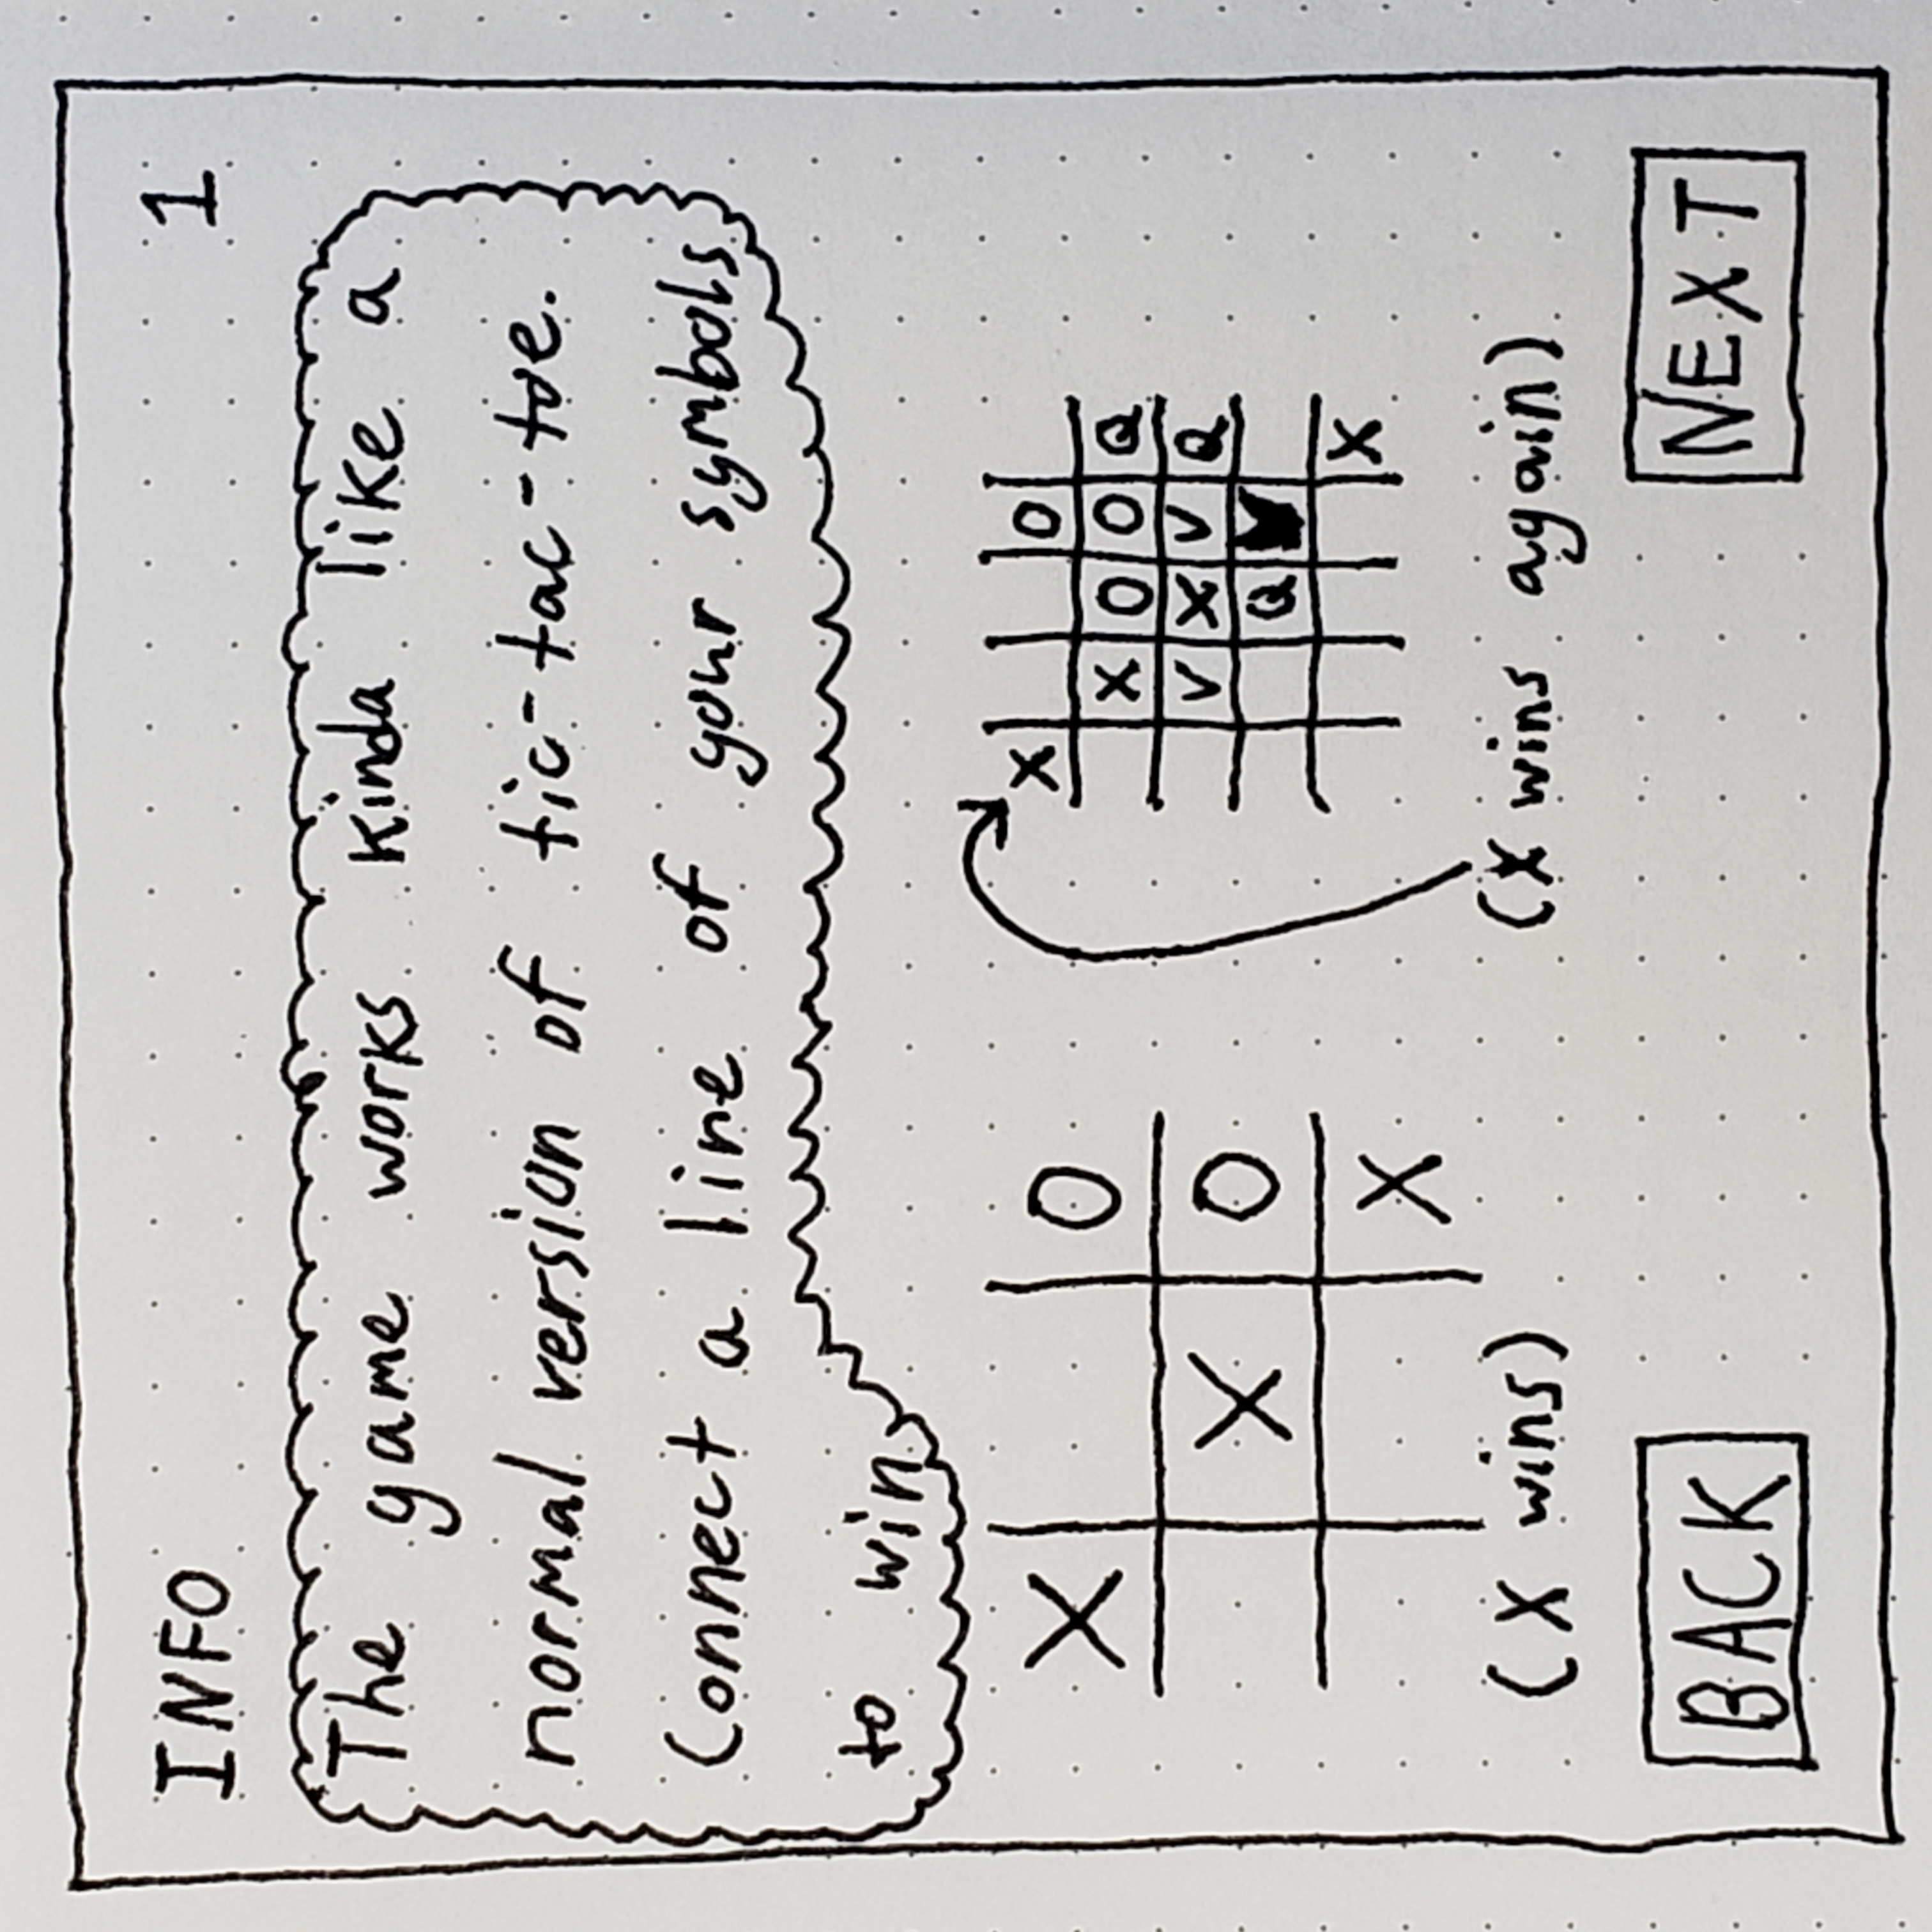 INFO 1
The game works kinda like a
normal version of tic-tac-toe.
Connect a line of your symbols
to win
X O
X O
X
X O
X O O Q
V X V Q
Q
X
(X wins) (X wins again)
BACK NEXT